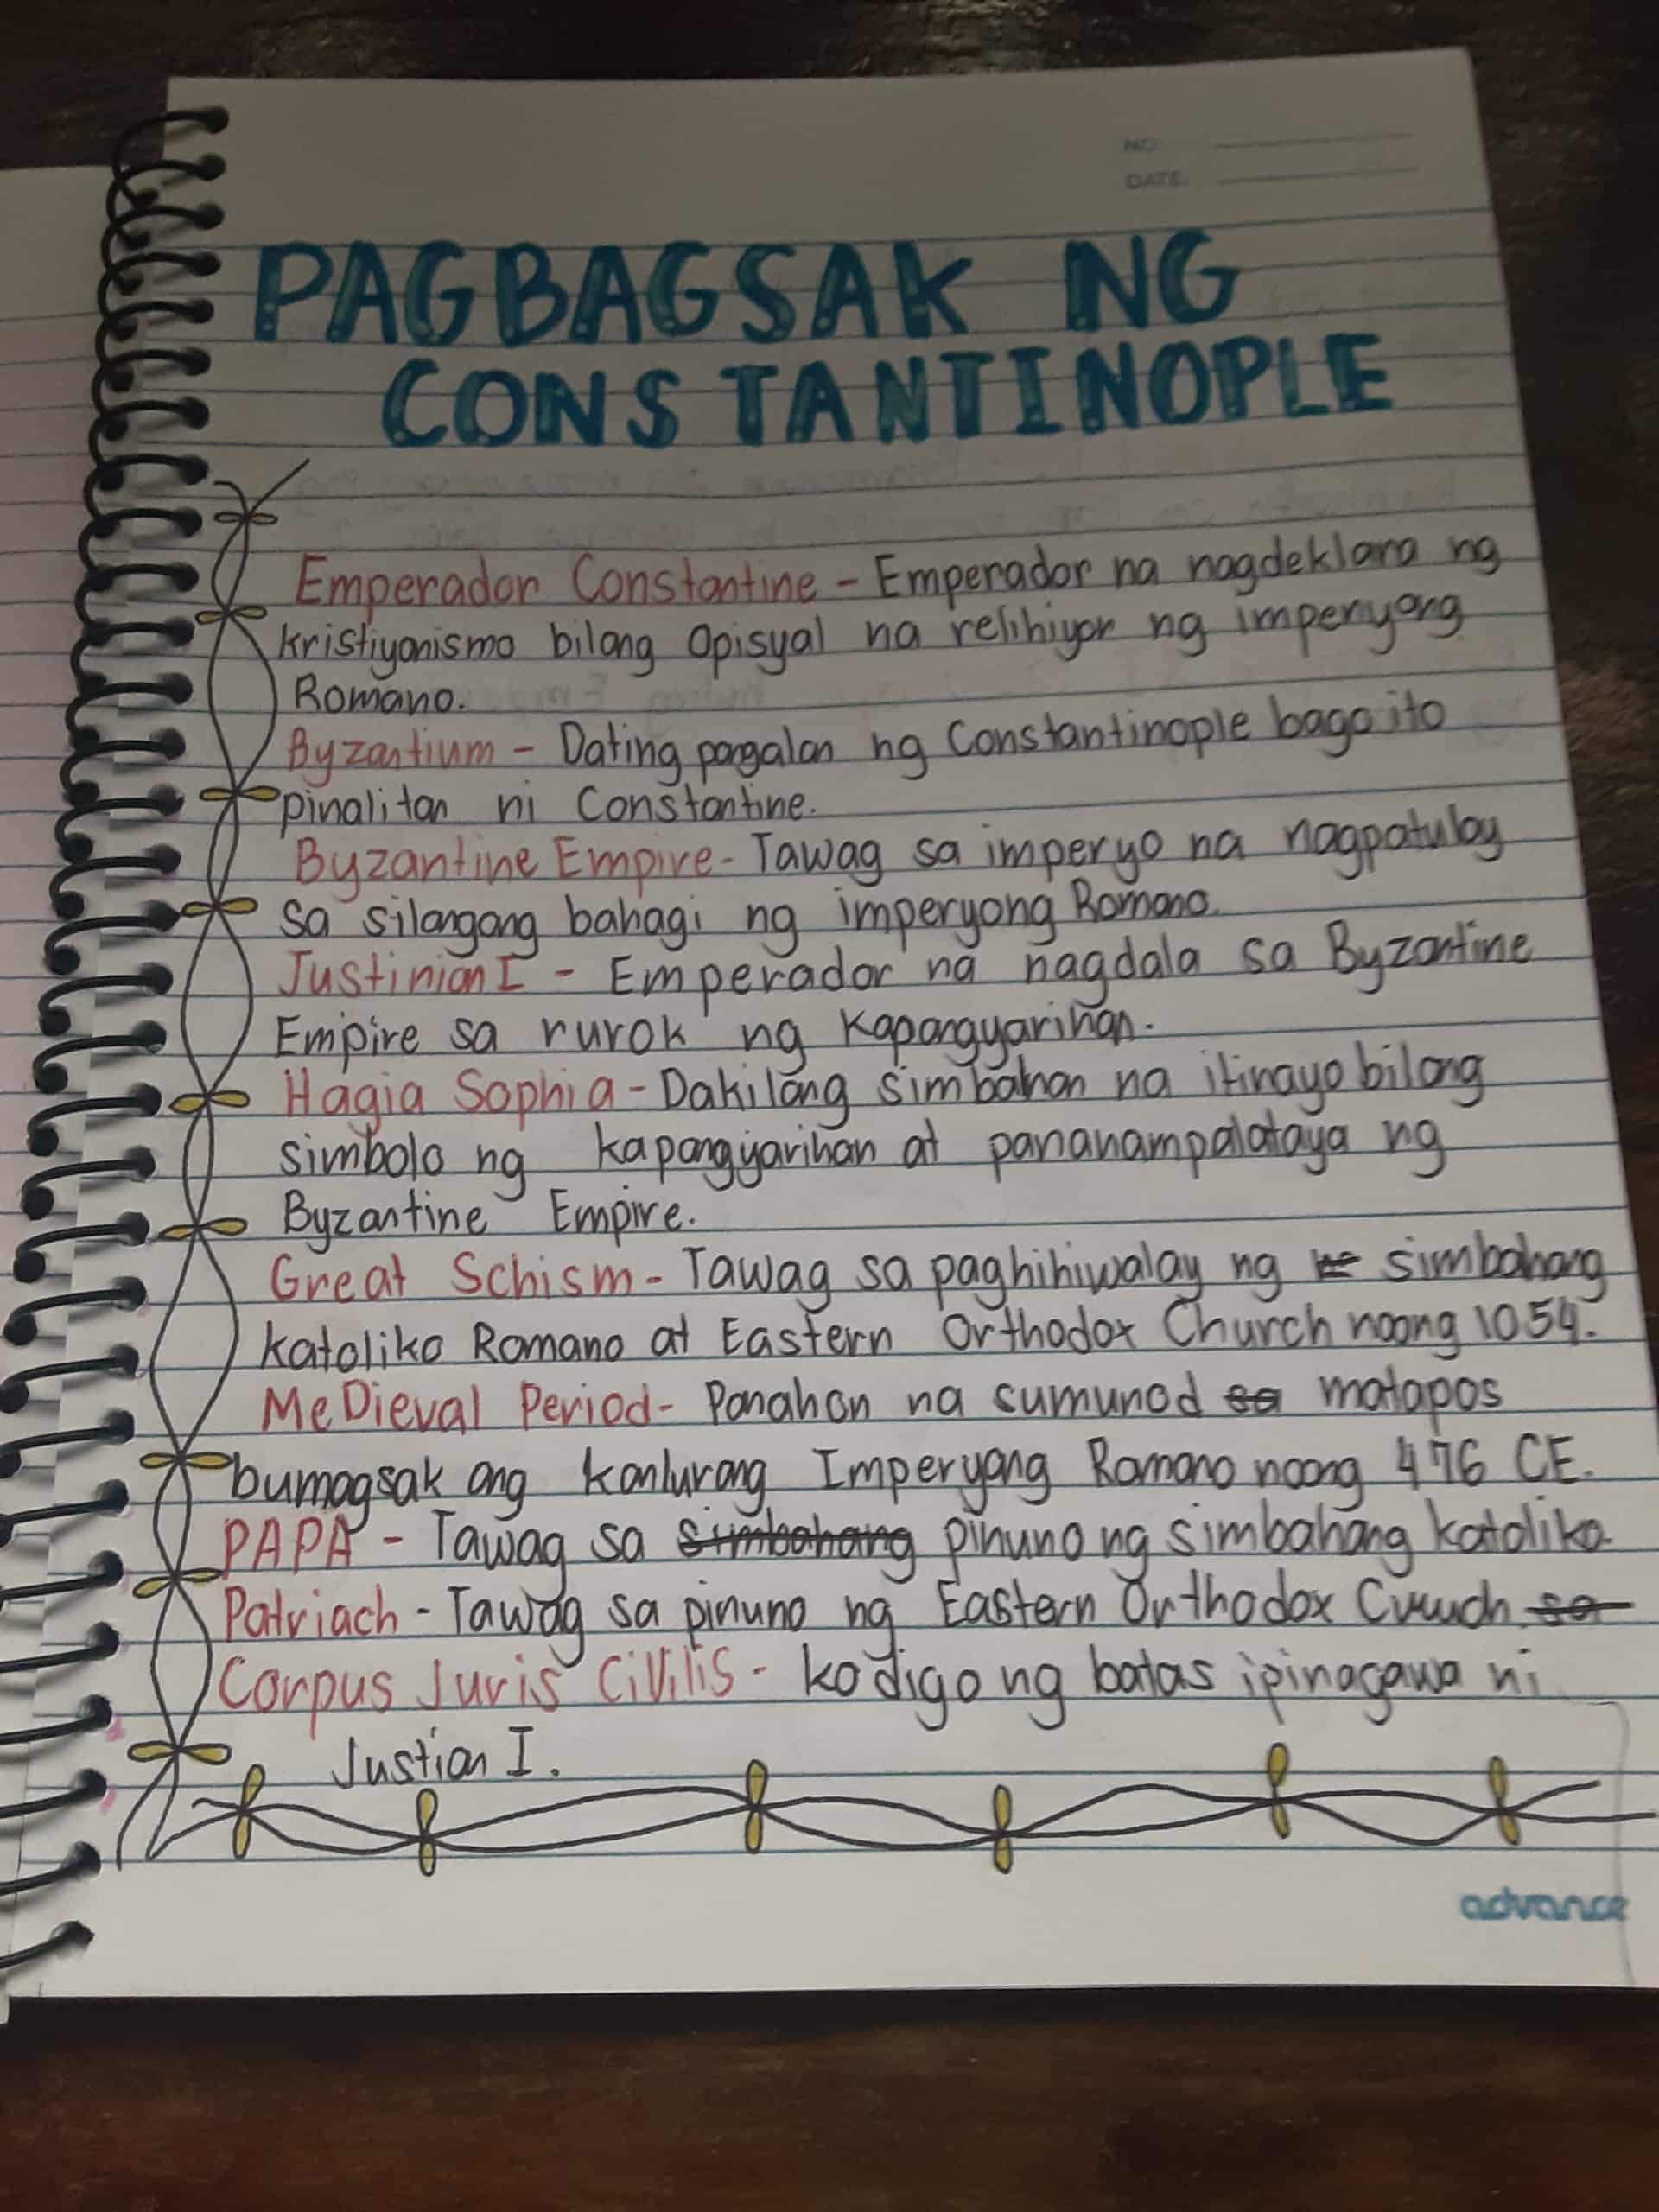 NO:
DATE:
PAGBAGSAK NG
CONSTANTINOPLE
Emperador Constantine - Emperador na nagdeklara ng
kristiyanismo bilang Opisyal na relihiyon ng imperyong
Romano.
Byzantium - Dating pangalan ng Constantinople bago ito
pinalitan ni Constantine.
Byzantine Empire - Tawag sa imperyo na nagpatuloy
sa silangang bahagi ng imperyong Romano.
Justinian I - Emperador na nagdala sa Byzantine
Empire sa rurok ng Kapangyarihan.
Hagia Sophia - Dakilang simbahan na itinayo bilang
simbolo ng kapangyarihan at pananampalataya ng
Byzantine Empire.
Great Schism - Tawag sa paghihiwalay ng simbahang
katoliko Romano at Eastern Orthodox Church noong 1054.
MeDieval Period - Panahon na sumunod sa matapos
bumagsak ang kanlurang Imperyong Romano noong 476 CE.
PAPA - Tawag sa simbahang pinuno ng simbahang katoliko.
Patriach - Tawag sa pinuno ng Eastern Orthodox sa
Corpus Juris Civilis - kodigo ng batas ipinagawa ni
Justian I.
advance